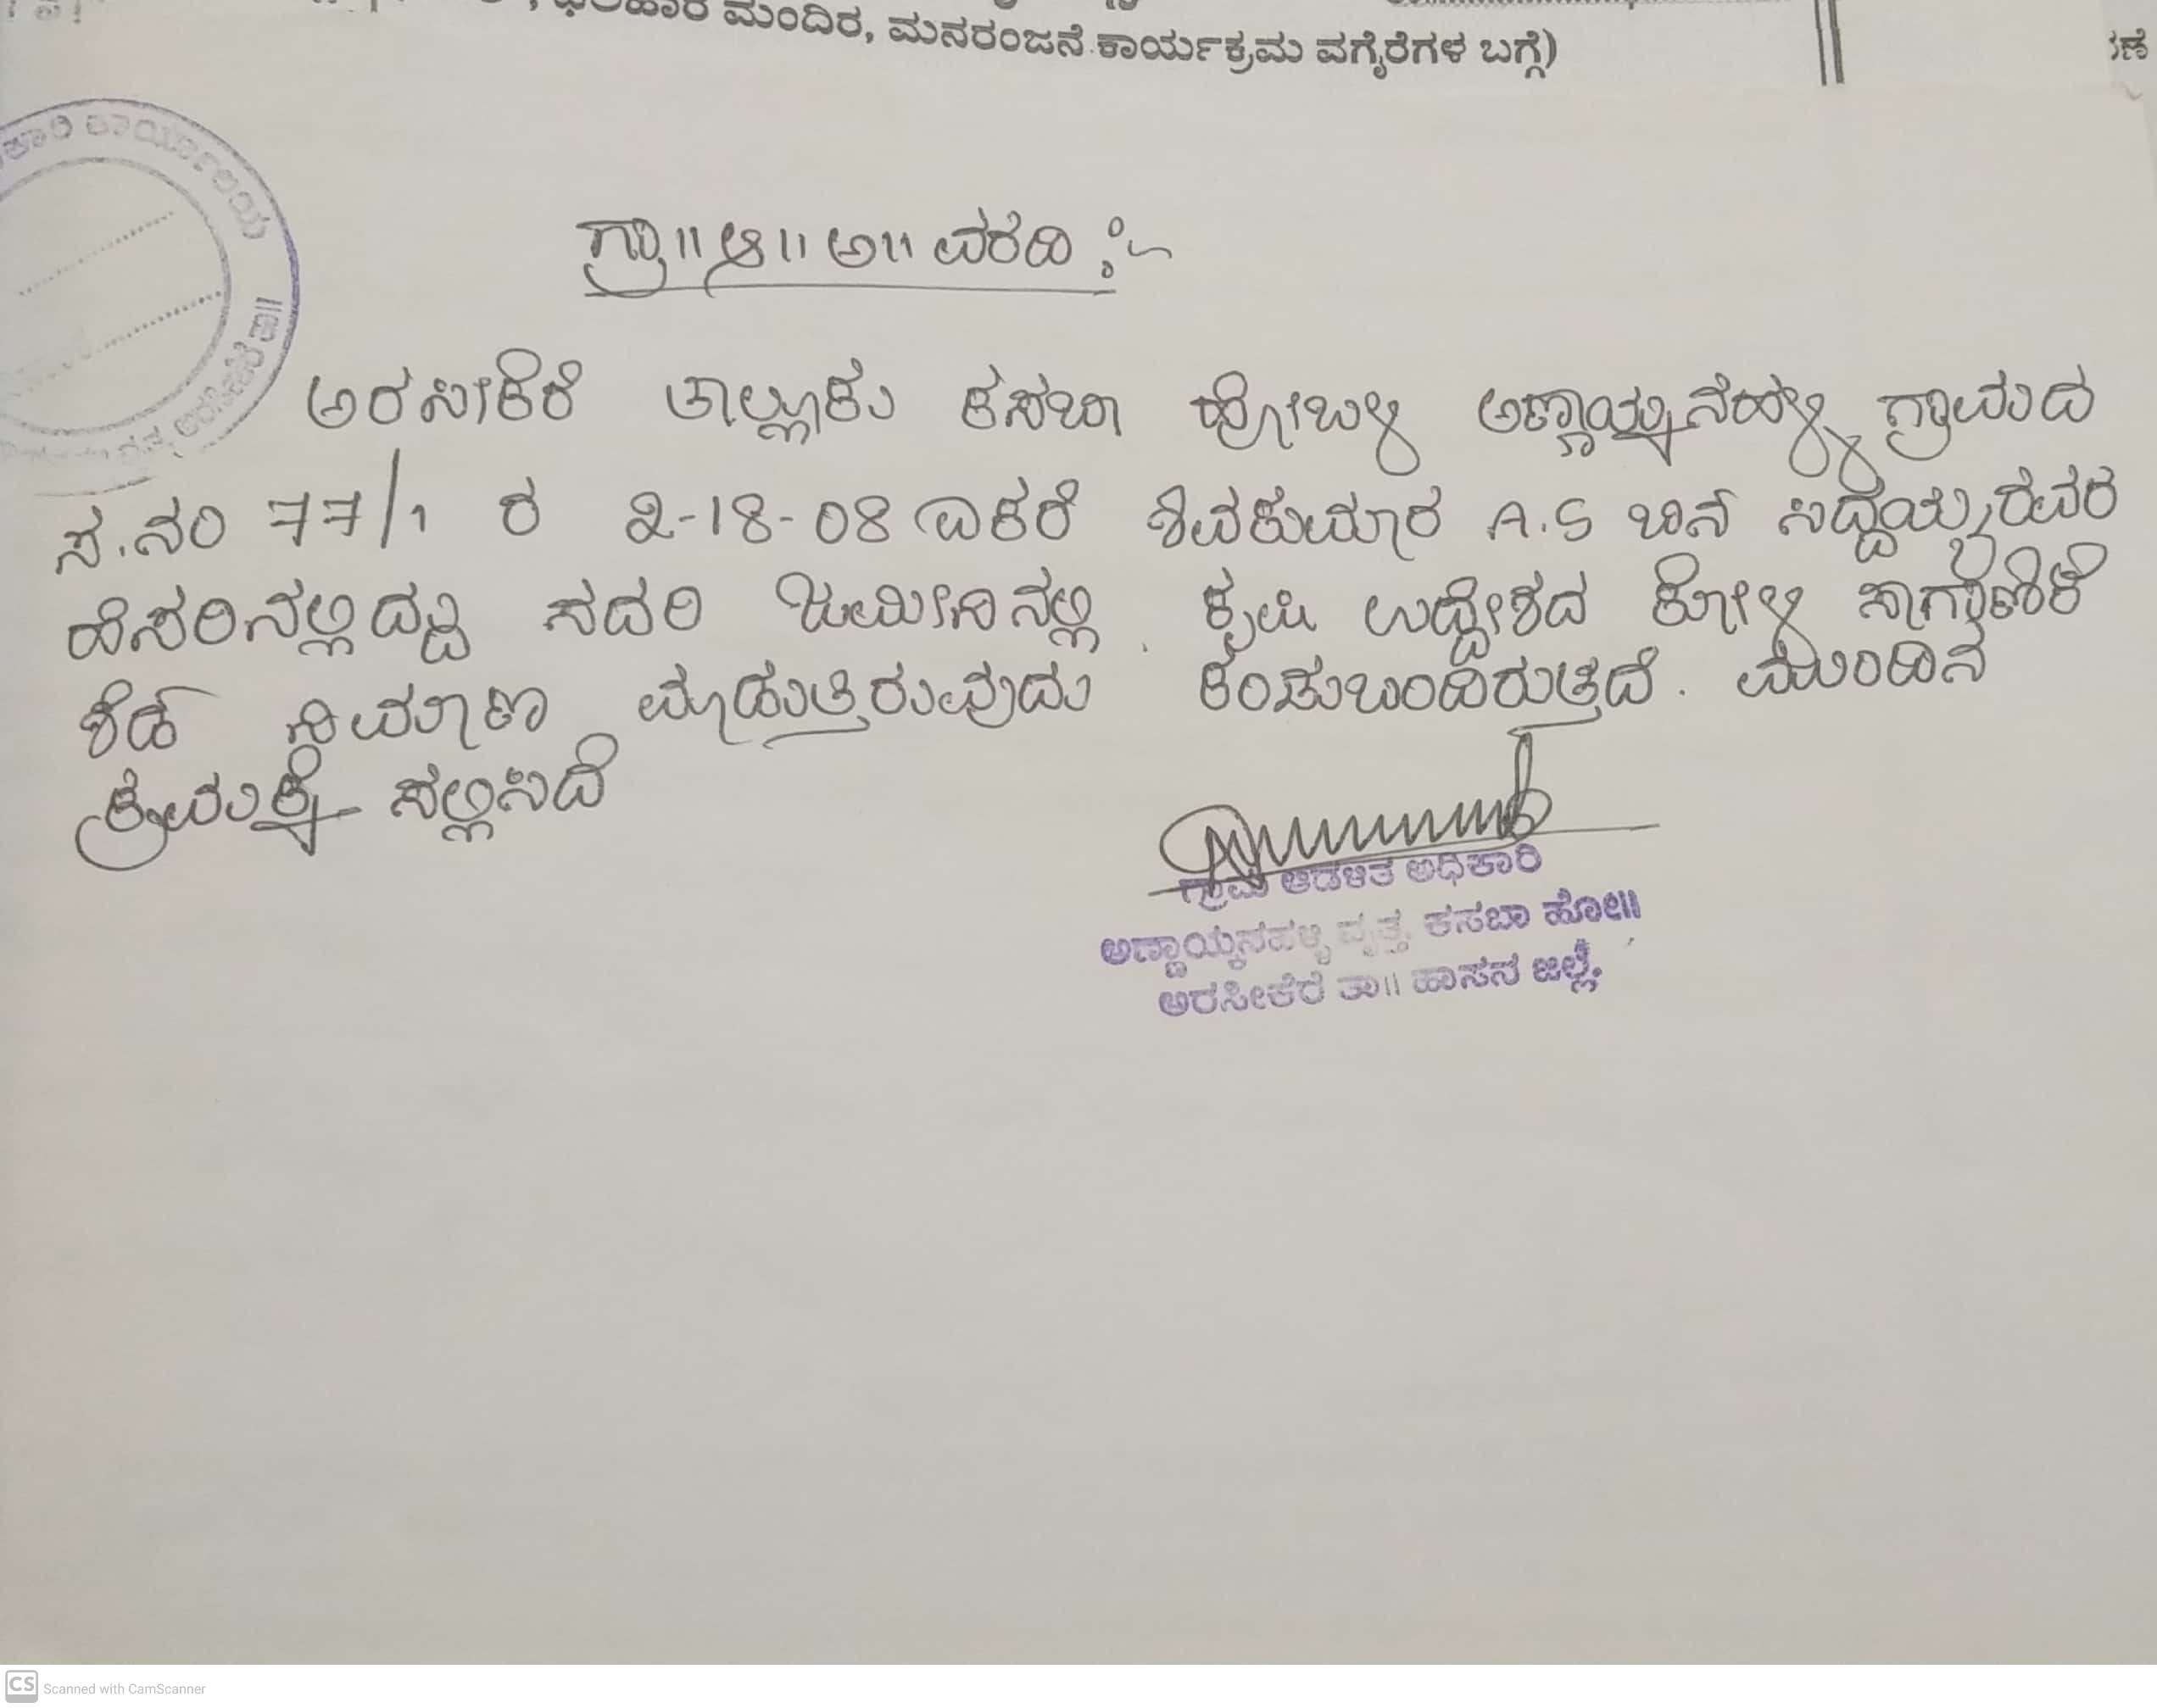 ಮಂದಿರ, ಮನರಂಜನೆ ಕಾರ್ಯಕ್ರಮ ವಗೈರೆಗಳ ಬಗ್ಗೆ)
ಕಾರ್ಯಾಲಯ
ಗ್ರಾ॥ ಆ॥ ಅ॥ ವರದಿ :-
ಅರಸೀಕೆರೆ ತಾಲ್ಲೂಕು ಕಸಬಾ ಹೋಬಳಿ ಅಣ್ಣಾಯ್ಕನಹಳ್ಳಿ ಗ್ರಾಮದ
ಸ.ನಂ 77/1 ರ 2-18-08 ಎಕರೆ ಶಿವಕುಮಾರ A.S ಬಿನ್ ಸಿದ್ದಯ್ಯರವರ
ಹೆಸರಿನಲ್ಲಿದ್ದು ಸದರಿ ಜಮೀನಿನಲ್ಲಿ ಕೃಷಿ ಉದ್ದೇಶದ ಕೋಳಿ ಸಾಗಾಣಿಕೆ
ಶೆಡ್ ನಿರ್ಮಾಣ ಮಾಡುತ್ತಿರುವುದು ಕಂಡುಬಂದಿರುತ್ತದೆ. ಮುಂದಿನ
ಕ್ರಮಕ್ಕೆ ಸಲ್ಲಿಸಿದೆ
ಗ್ರಾಮ ಆಡಳಿತ ಅಧಿಕಾರಿ
ಅಣ್ಣಾಯ್ಕನಹಳ್ಳಿ ವೃತ್ತ, ಕಸಬಾ ಹೋ॥
ಅರಸೀಕೆರೆ ತಾ॥ ಹಾಸನ ಜಿಲ್ಲೆ.
CS Scanned with CamScanner